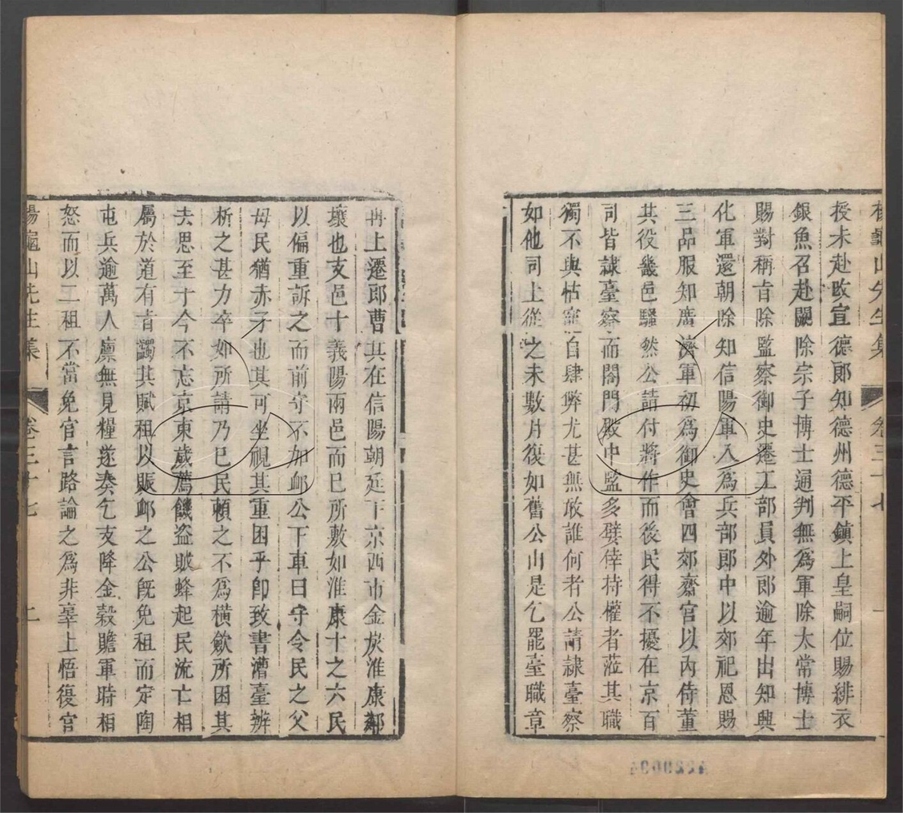 楊龜山先生集 卷三十七
授未赴改宣德郎知德州德平鎮上皇嗣位賜緋衣
銀魚召赴闕除宗子博士通判無為軍除太常博士
賜對稱旨除監察御史遷工部員外郎逾年出知興
化軍還朝除知信陽軍入為兵部郎中以郊祀恩賜
三品服知廣濟軍初為御史會四郊齋官以內侍董
其役畿邑騷然公請付將作而後民得不擾在京百
司皆隷臺察而閤門殿中監多嬖倖恃權者蒞其職
獨不與怙寵自肆弊尤甚無敢誰何者公請隷臺察
如他司上從之未數月復如舊公由是乞罷臺職章
再上遷郎曹其在信陽朝廷下京西市金於淮康郡
壤也支邑十義陽兩邑而已所敷如淮康十之六民
以偏重訴之而前守不加卹公下車曰守令民之父
母民猶赤子也其可坐視其重困乎卽致書漕臺辨
析之甚力卒如所請乃已民頼之不為橫歛所困其
去思至于今不忘京東歲薦饑盜賊蜂起民流亡相
屬於道有旨蠲其賦租以賑卹之公旣免租而定陶
屯兵逾萬人廩無見糧遂奏乞支降金穀贍軍時相
怒而以二租不當免官言路論之為非辜上悟復官
楊龜山先生集 卷三十七 二